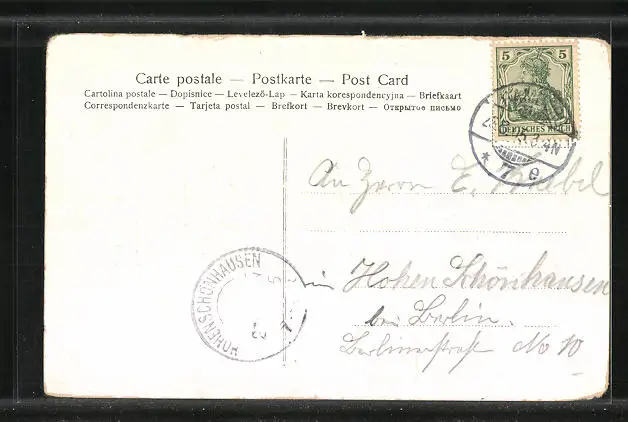 Carte postale — Postkarte — Post Card
Cartolina postale — Dopisnice — Levelező-Lap — Karta korespondencyjna — Briefkaart
Correspondenzkarte — Tarjeta postal — Brefkort — Brevkort — Открытое письмо
5 5
DEUTSCHES REICH
An Herrn E.
in Hohen Schönhausen
bei Berlin.
Berlinerstraße No 10
HOHENSCHÖNHAUSEN